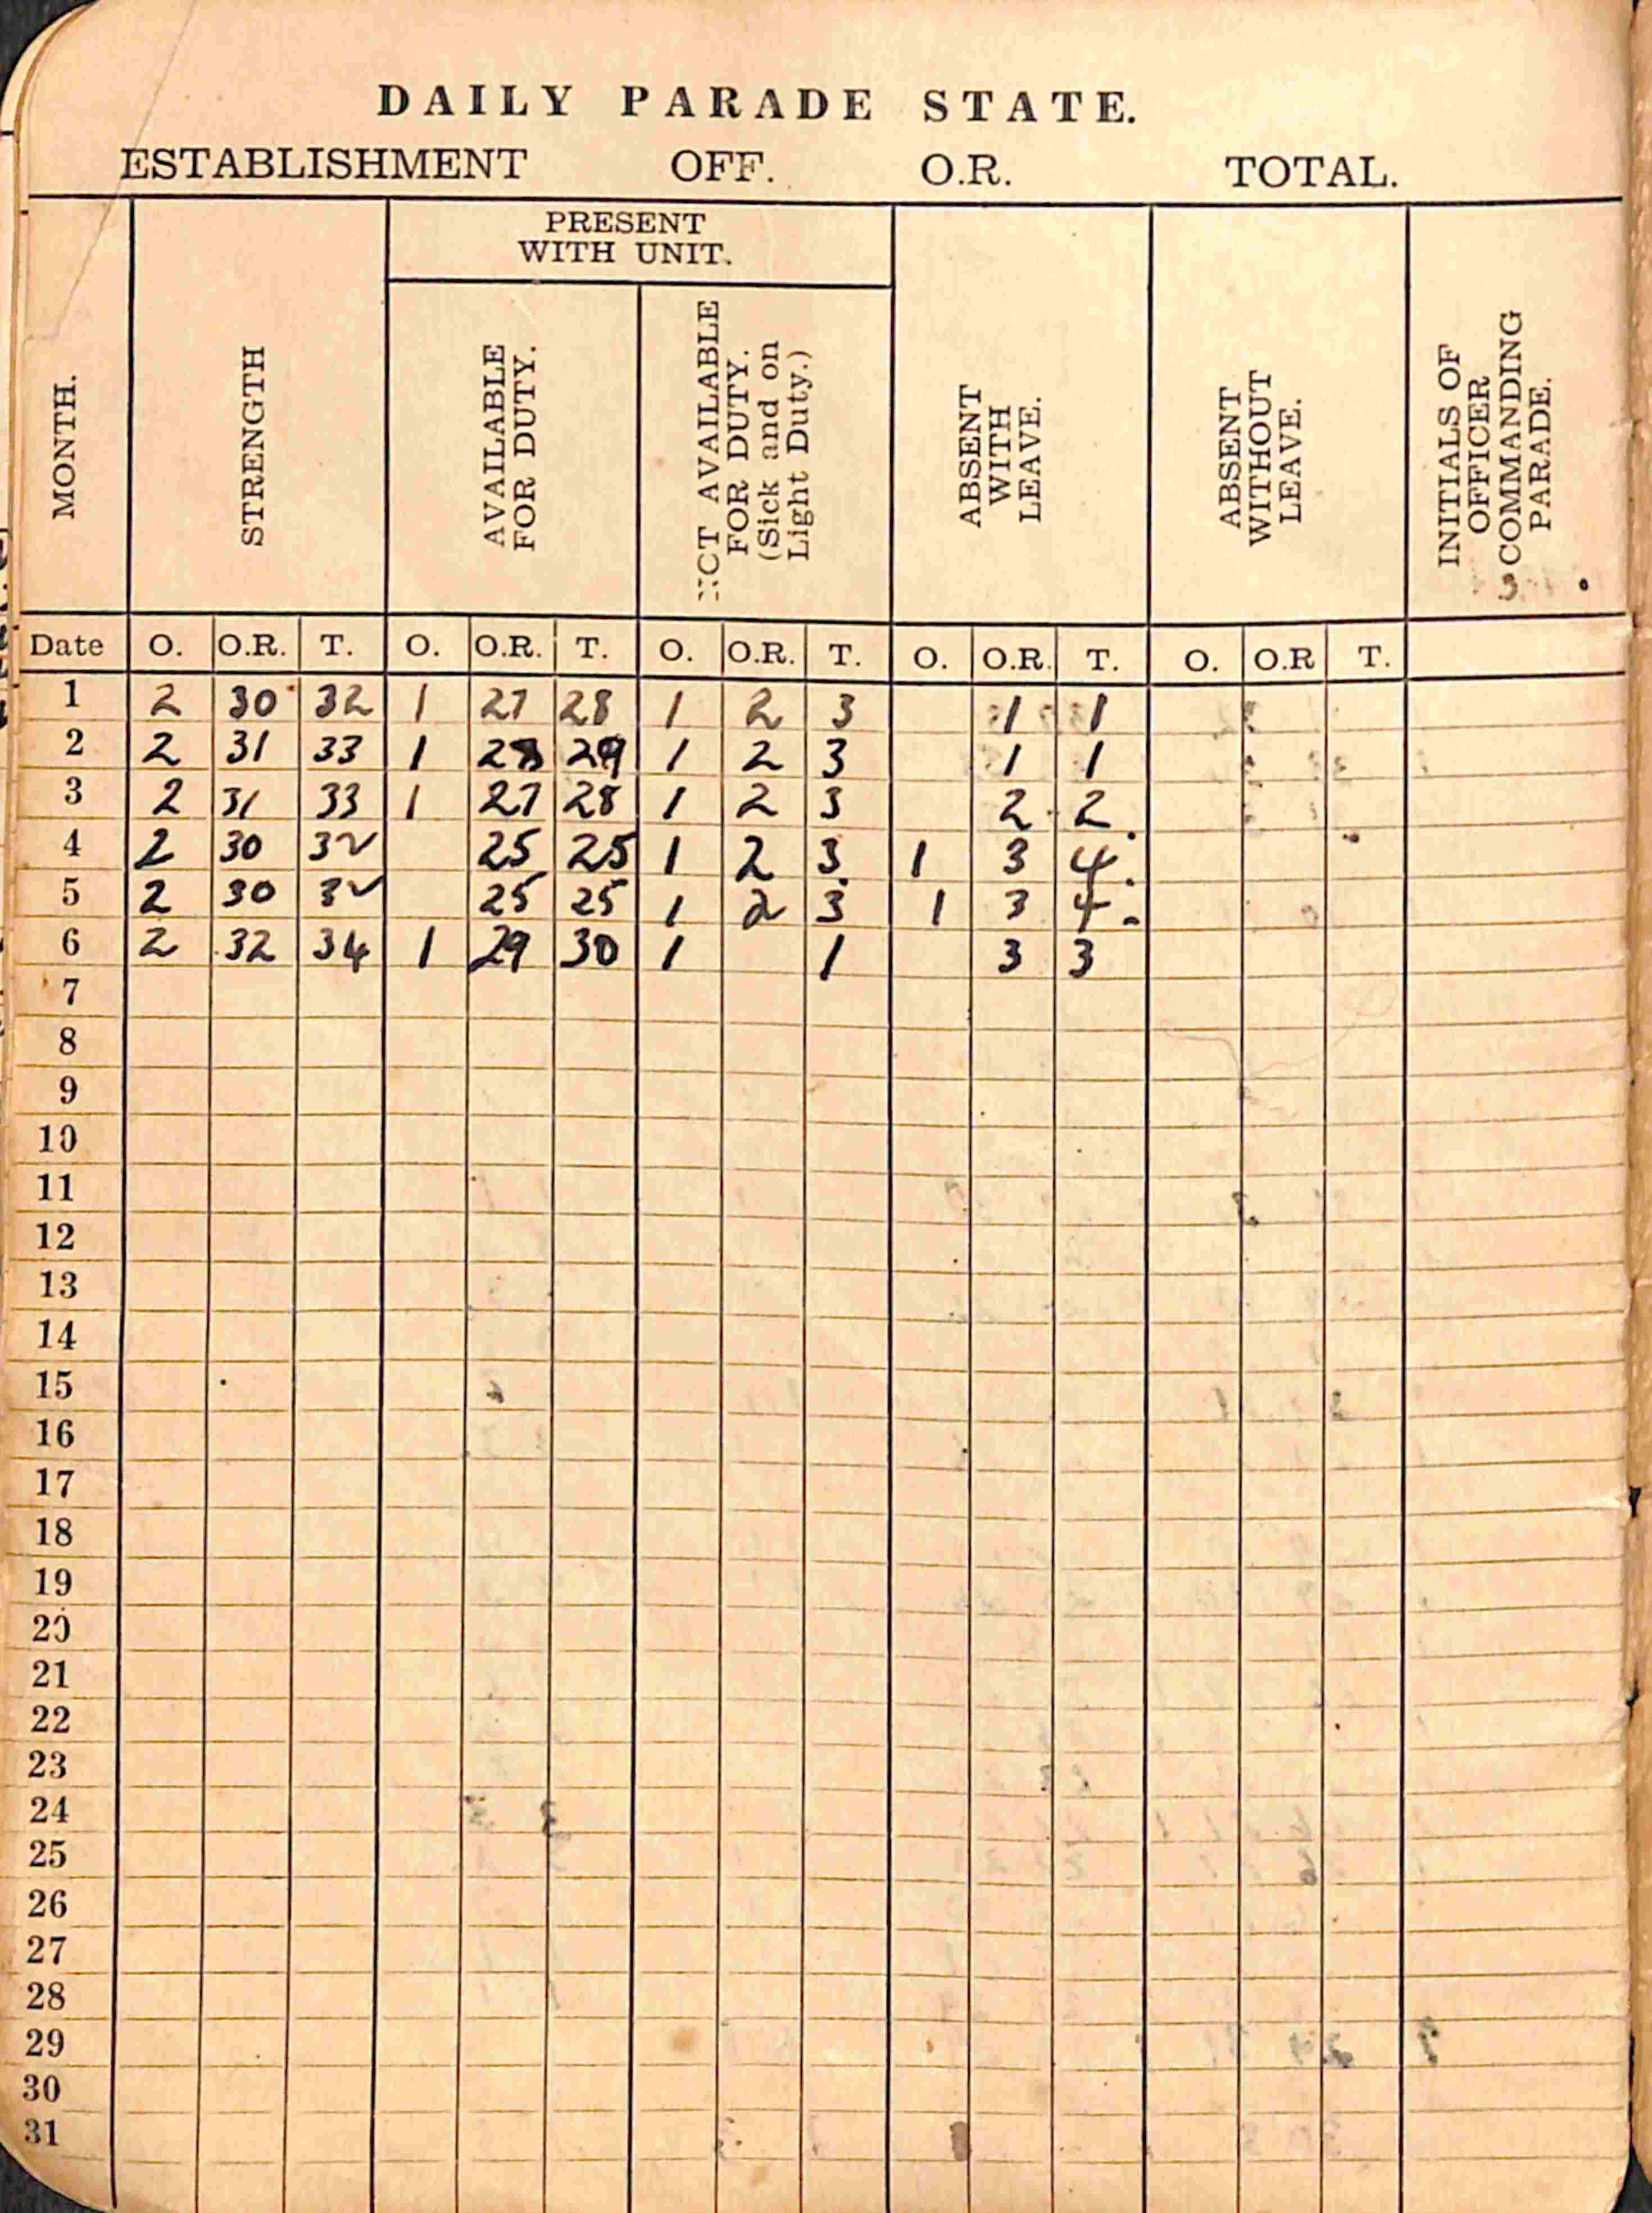 DAILY PARADE STATE.
ESTABLISHMENT OFF. O.R. TOTAL.
PRESENT
WITH UNIT.
MONTH.
STRENGTH
AVAILABLE
FOR DUTY.
AVAILABLE
FOR DUTY.
(Sick and on
Light Duty.)
ABSENT
WITH
LEAVE.
ABSENT
WITHOUT
LEAVE.
INITIALS OF
OFFICER
COMMANDING
PARADE.
Date O. O.R. T. O. O.R. T. O. O.R. T. O. O.R. T. O. O.R T.
1 2 30 32 1 27 28 1 2 3 1 1
2 2 31 33 1 28 29 1 2 3 1 1
3 2 31 33 1 27 28 1 2 3 2 2
4 2 30 32 25 25 1 2 3 1 3 4
5 2 30 32 25 25 1 2 3 1 3 4
6 2 32 34 1 29 30 1 1 3 3
7
8
9
10
11
12
13
14
15
16
17
18
19
20
21
22
23
24
25
26
27
28
29
30
31